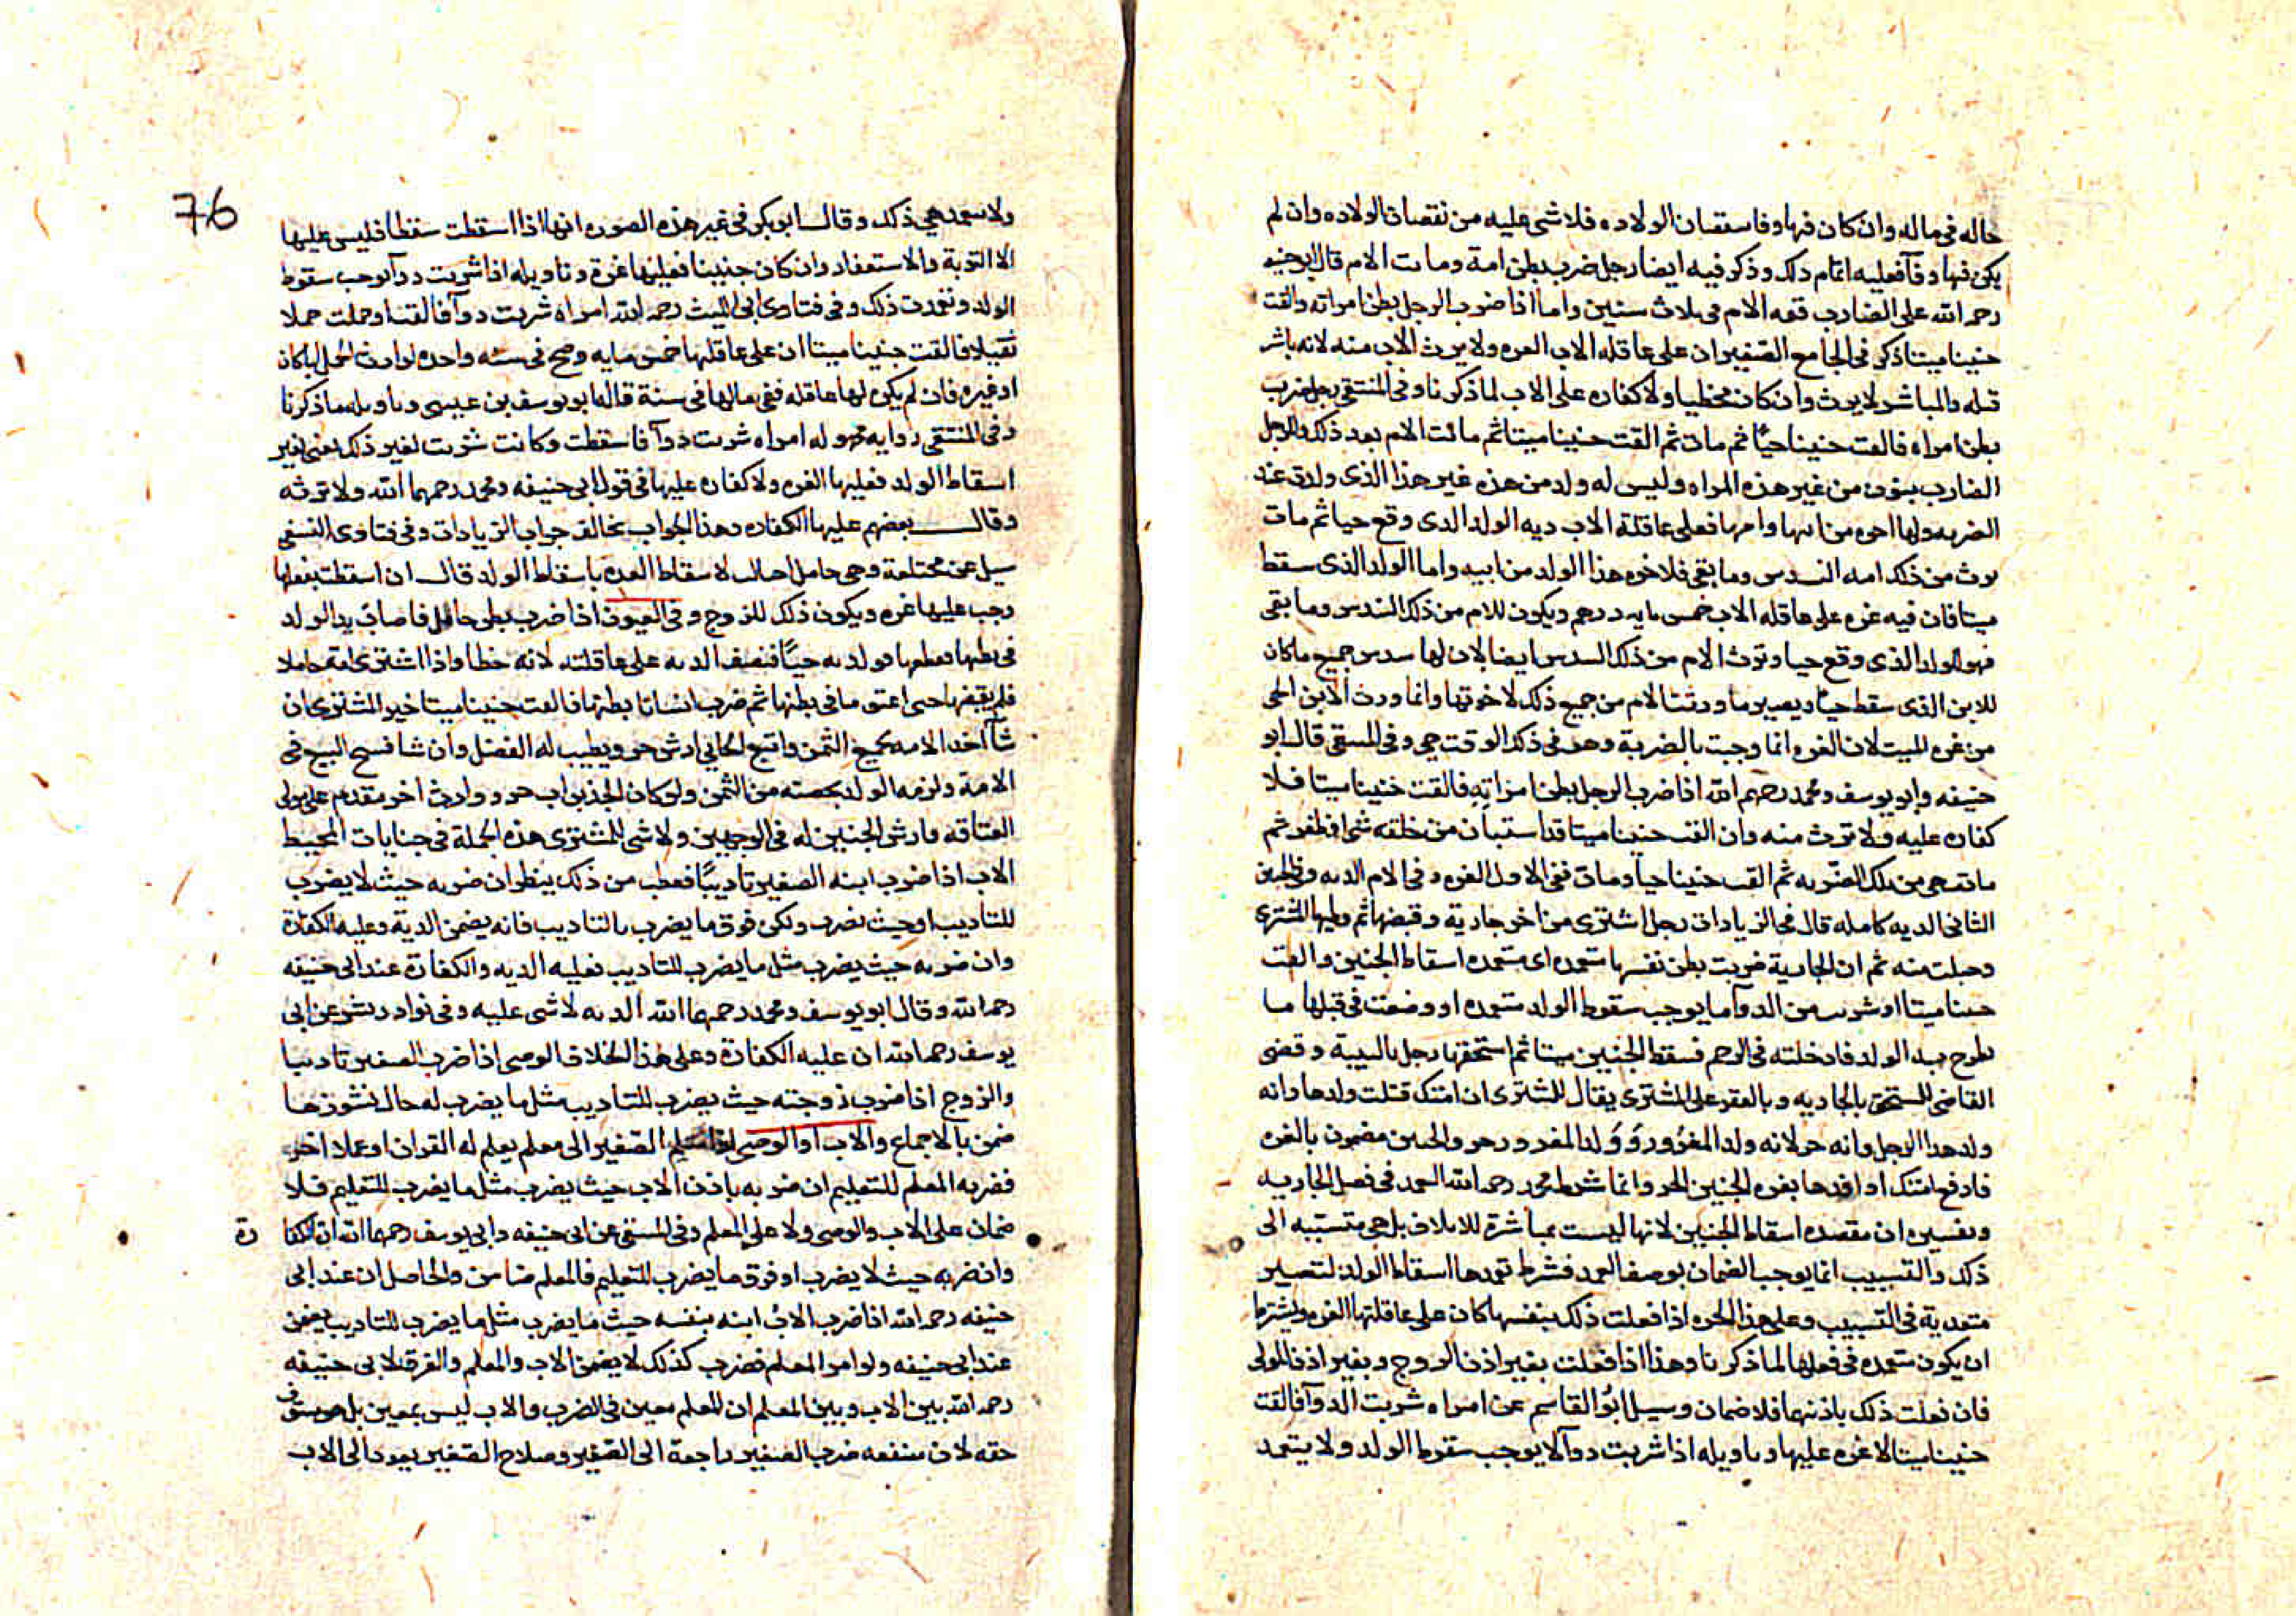 حاله فى ماله وان كان فيها وفا سقصان الولاده فلا شى عليه من نقصان الولاده وان لم
يكن فيها وفآ فعليه اتمام ذلك وذكر فيه ايضا رجل ضرب بطن امة وماتت الام قال ابو حنيفه
رحمه الله على الضارب قيمه الام فى ثلاث سنين واما اذا ضرب الرجل بطن امراته والقت
جنينا ميتا ذكر فى الجامع الصغير ان على عاقله الاب الغره ولا يرث الاب منه لانه باشر
قتله والمباشر لا يرث وان كان مخطيا ولا كفاره على الاب لما ذكرنا وفى المنتقى رجل ضرب
بطن امراه فالقت جنينا حيًا ثم مات ثم القت جنينا ميتا ثم ماتت الام بعد ذلك وللرجل
الضارب بنون من غير هذه المراه وليس له ولد من هذه غير هذا الذى ولدت عند
الضربه ولها اخوه من ابيها وامها فعلى عاقلة الاب ديه الولد الذى وقع حيا ثم مات
يرث من ذلك امه السدس وما بقى فلاخوه هذا الولد من ابيه واما الولد الذى سقط
ميتا فان فيه غره على عاقله الاب خمس مايه درهم ويكون للام من ذلك السدس وما بقى
فهو للولد الذى وقع حيا وترث الام من ذلك السدس ايضا لان لها سدس جميع ما كان
للابن الذى سقط حيا ويصير ما ورثت الام من جميع ذلك لاخوتها وانما ورث الابن الحى
من غره الميت لان الغره انما وجبت بالضربة وهو فى ذلك الوقت حى وفى المنتقى قال ابو
حنيفه وابو يوسف ومحمد رحمهم الله اذا ضرب الرجل بطن امراته فالقت جنينا ميتا فلا
كفاره عليه ولا يرث منه وان القت جنينا ميتا قد استبان من خلقه شى او ظفر ثم
ماتت هى من تلك الضربه ثم القت جنينا حيا ومات ففى الاول الغره وفى الام الديه وفى الجنين
الثانى الديه كامله قال فى الزيادات رجل اشترى من اخر جارية وقبضها ثم وطيها المشترى
وحبلت منه ثم ان الجارية ضربت بطن نفسها متعمده اى متعمده اسقاط الجنين والقت
جنينا ميتا او شربت من الدوآ ما يوجب سقوط الولد متعمده او وضعت فى قبلها ما
يطرح به الولد فادخلته فى الرحم فسقط الجنين ميتا ثم استحقها رجل بالبينة وقضى
القاضى للمستحق بالجاريه وبالعقر على المشترى يقال للمشترى ان امتك قتلت ولدها وانه
ولد هذا الرجل وانه حر لانه ولد المغرور وَولد المغرور حر والجنين مضمون بالغره
فادفع امتك او افدها بغره الجنين الحر وانما شرط محمد رحمه الله العمد فى فصل الجاريه
وتفسيره ان مقصده اسقاط الجنين لانها ليست بمباشرة للاتلاف بل هى متسببه الى
ذلك والتسبيب انما يوجب الضمان بوصف العمد فشرط تعمدها اسقاط الولد لتصير
متعدية فى التسبيب وعلى هذا الحره اذا فعلت ذلك بنفسها كان على عاقلتها الغره ويشترط
ان يكون متعمده فى فعلها لما ذكرنا وهذا اذا فعلت بغير اذن الزوج وبغير اذن المولى
فان فعلت ذلك باذنهما فلا ضمان وسيل ابُو القاسم عن امراه شربت الدوآ فالقت
جنينا ميتا لا غره عليها وتاويله اذا شربت دوآ لا يوجب سقوط الولد ولا يتعمد
76
ولا تتعمد هى ذلك وقال ابو بكر فى غير هذه الصوره انها اذا اسقطت سقطا فليس عليها
الا التوبة والاستغفار وان كان جنينا فعليها غرة وتاويله اذا شربت دوآ يوجب سقوط
الولد وتعمدت ذلك وفى فتاوى ابى الليث رحمه الله امراه شربت دوآ فالقت او حملت حملا
ثقيلا فالقت جنينا ميتا ان على عاقلتها خمس مايه وضح فى سنه واحده لوارث الحمل ابا كان
او غيره فان لم يكن لها عاقله ففى مالها فى سنة قاله ابو يوسف بن عيسى وتاويله ما ذكرنا
وفى المنتقى روايه مجهوله امراه شربت دوآ فاسقطت وكانت شربت لغير ذلك يعنى لغير
اسقاط الولد فعليها الغره ولا كفاره عليها فى قول ابى حنيفه ومحمد رحمهما الله ولا ترثه
وقال بعضهم عليها الكفاره وهذا الجواب يخالف جواب الزيادات وفى فتاوى النسفى
سيل عن مختلعة وهى حامل احتالت لاسقاط العده باسقاط الولد قال ان اسقطت بفعلها
وجب عليها غره ويكون ذلك للزوج وفى العيون اذا ضرب بطن حامل فاصاب يد الولد
فى بطنها فقطعها فولدته حيًا فنصف الديه على عاقلته لانه خطا واذا اشترى امة حاملا
فلم يقبضها حتى اعتق ما فى بطنها ثم ضرب انسان بطنها فالقت جنينا ميتا خير المشترى ان
شآ اخذ الامه بجميع الثمن واتبع الجانى ارش حر ويطيب له الفضل وان شا فسخ البيع فى
الامة ولزمه الولد بحصته من الثمن ولو كان للجنين اب حر ووارث اخر مقدم على مولى
العتاقه فارش الجنين له فى الوجهين ولا شى للمشترى هذه الجملة فى جنايات المحيط
الاب اذا ضرب ابنه الصغير تاديبًا فعطب من ذلك ينظر ان ضربه حيث لا يضرب
للتاديب او حيث يضرب ولكن فوق ما يضرب بالتاديب فانه يضمن الدية وعليه الكفارة
وان ضربه حيث يضرب مثل ما يضرب للتاديب فعليه الديه والكفارة عند ابى حنيفه
رحمه الله وقال ابو يوسف ومحمد رحمهما الله الديه لا شى عليه وفى نوادر بشر عن ابى
يوسف رحمه الله ان عليه الكفارة وعلى هذا الخلاف الوصى اذا ضرب الصغير تاديبا
والزوج اذا ضرب زوجته حيث يضرب للتاديب مثل ما يضرب له حال نشوزها
ضمن بالاجماع والاب او الوصى اذا سلم الصغير الى معلم يعلم له القران او عملا اخر
فضربه المعلم للتعليم ان ضربه باذن الاب حيث يضرب مثل ما يضرب للتعليم فلا
ضمان على الاب والوصى ولا على المعلم وفى المنتقى عن ابى حنيفه وابى يوسف رحمهما الله ان الكفا رة
وان ضربه حيث لا يضرب او فوق ما يضرب للتعليم فالمعلم ضامن والحاصل ان عند ابى
حنيفه رحمه الله اذا ضرب الاب ابنه بنفسه حيث ما يضرب مثل ما يضرب للتاديب يضمن
عند ابى حنيفه ولو امر المعلم فضرب كذلك لا يضمن الاب والمعلم والفرق لابى حنيفه
رحمه الله بين الاب وبين المعلم ان المعلم معين فى الضرب والاب ليس بمعين بل هو مستوفى
حقه لان منفعه ضرب الصغير راجعة الى الصغير وصلاح الصغير يعود الى الاب